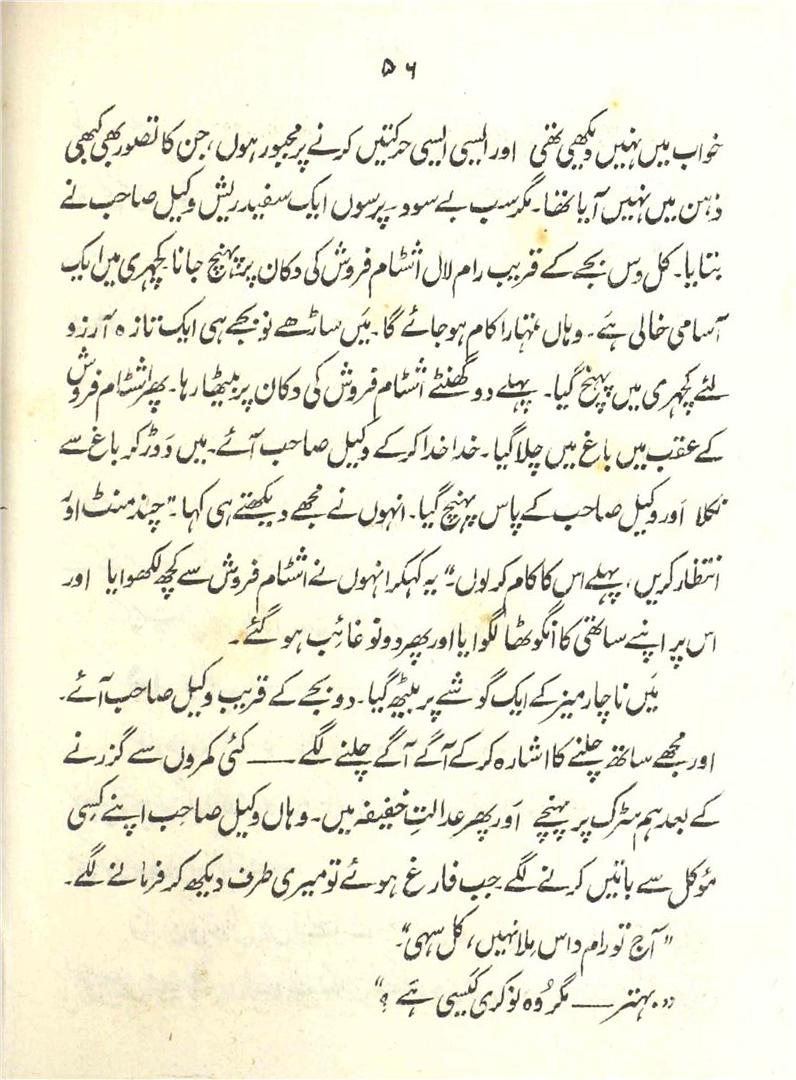 ۵۶
خواب میں نہیں دیکھی تھی اور ایسی ایسی حرکتیں کرنے پر مجبور ہوں، جن کا تصور بھی کبھی
ذہن میں نہیں آیا تھا۔ مگر سب بے سود۔ پرسوں ایک سفید ریش وکیل صاحب نے
بتایا۔ کل دس بجے کے قریب رام لال اشٹام فروش کی دکان پر پہنچ جانا کچہری میں ایک
آسامی خالی ہے۔ وہاں تمہارا کام ہو جائے گا۔ میَں ساڑھے نو بجے ہی ایک تازہ آرزو
لئے کچہری میں پہنچ گیا۔ پہلے دو گھنٹے اشٹام فروش کی دکان پر بیٹھا رہا۔ پھر اشٹام فروش
کے عقب میں باغ میں چلا گیا۔ خدا خدا کرکے وکیل صاحب آئے۔ میں دَوڑ کر باغ سے
نکلا اَور وکیل صاحب کے پاس پہنچ گیا۔ انہوں نے مجھے دیکھتے ہی کہا۔ "چند منٹ اَور
انتظار کریں، پہلے اس کا کام کرلوں۔" یہ کہکر انہوں نے اشٹام فروش سے کچھ لکھوایا اور
اس پر اپنے ساتھی کا انگوٹھا لگوایا اور پھر دونو غائب ہو گئے۔
میَں ناچار میز کے ایک گوشے پر بیٹھ گیا۔ دو بجے کے قریب وکیل صاحب آئے۔
اور مجھے ساتھ چلنے کا اشارہ کرکے آگے آگے چلنے لگے —— کئی کمروں سے گزرنے
کے بعد ہم سڑک پر پہنچے اَور پھر عدالتِ خفیفہ میں۔ وہاں وکیل صاحب اپنے کِسی
مؤکل سے باتیں کرنے لگے۔ جب فارغ ہوئے تو میری طرف دیکھ کر فرمانے لگے۔
"آج تو رام داس مِلا نہیں، کل سہی"۔
"بہتر —— مگر وُہ نوکری کیَسی ہَے؟"